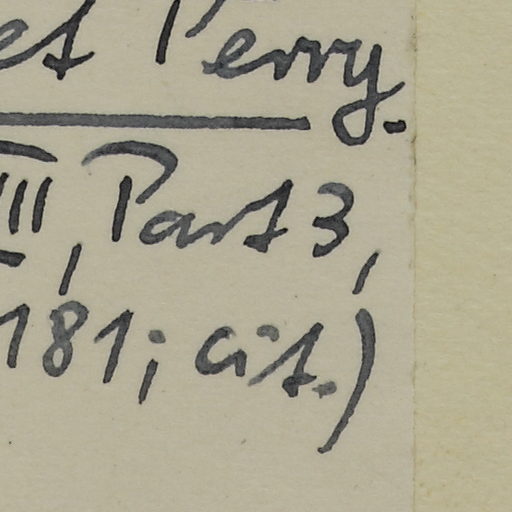 et Perry.
III, Part 3,
181; cit.)